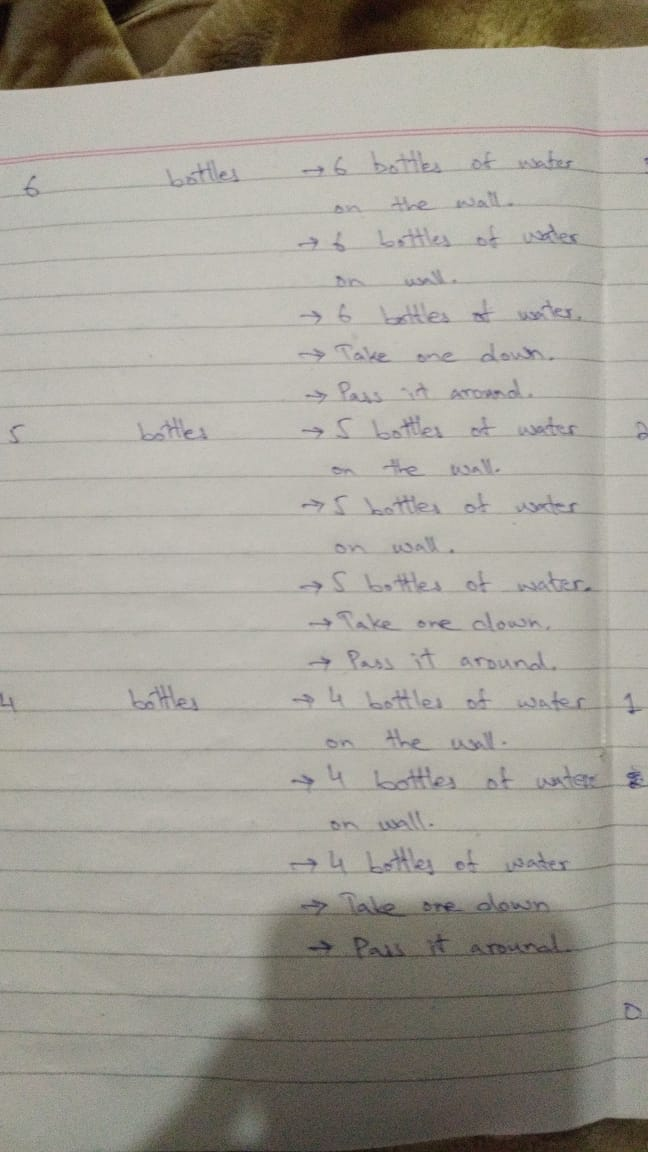 6 bottles → 6 bottles of water
on the wall.
→ 6 bottles of water
on wall.
→ 6 bottles of water.
→ Take one down.
→ Pass it around.
5 bottles → 5 bottles of water 2
on the wall.
→ 5 bottles of water
on wall.
→ 5 bottles of water.
→ Take one down.
→ Pass it around.
4 bottles → 4 bottles of water 1
on the wall.
→ 4 bottles of water
on wall.
→ 4 bottles of water
→ Take one down
→ Pass it around.
0